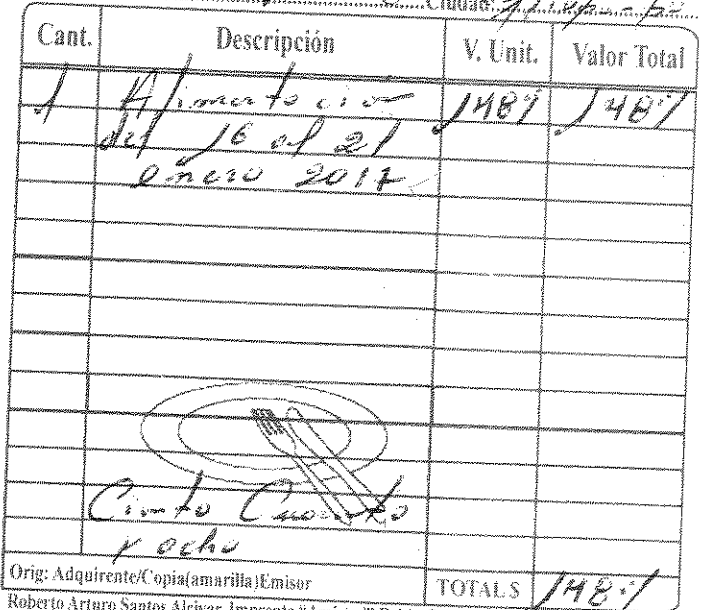 Ciudad:
Cant. Descripción V. Unit. Valor Total
1 Alimentacion 148% 148%
del 16 al 21
enero 2017
Ciento Cuarenta
y ocho
Orig: Adquirente/Copia(amarilla)Emisor TOTAL $ 148%
Roberto Arturo Santos Alcivar, Imprenta